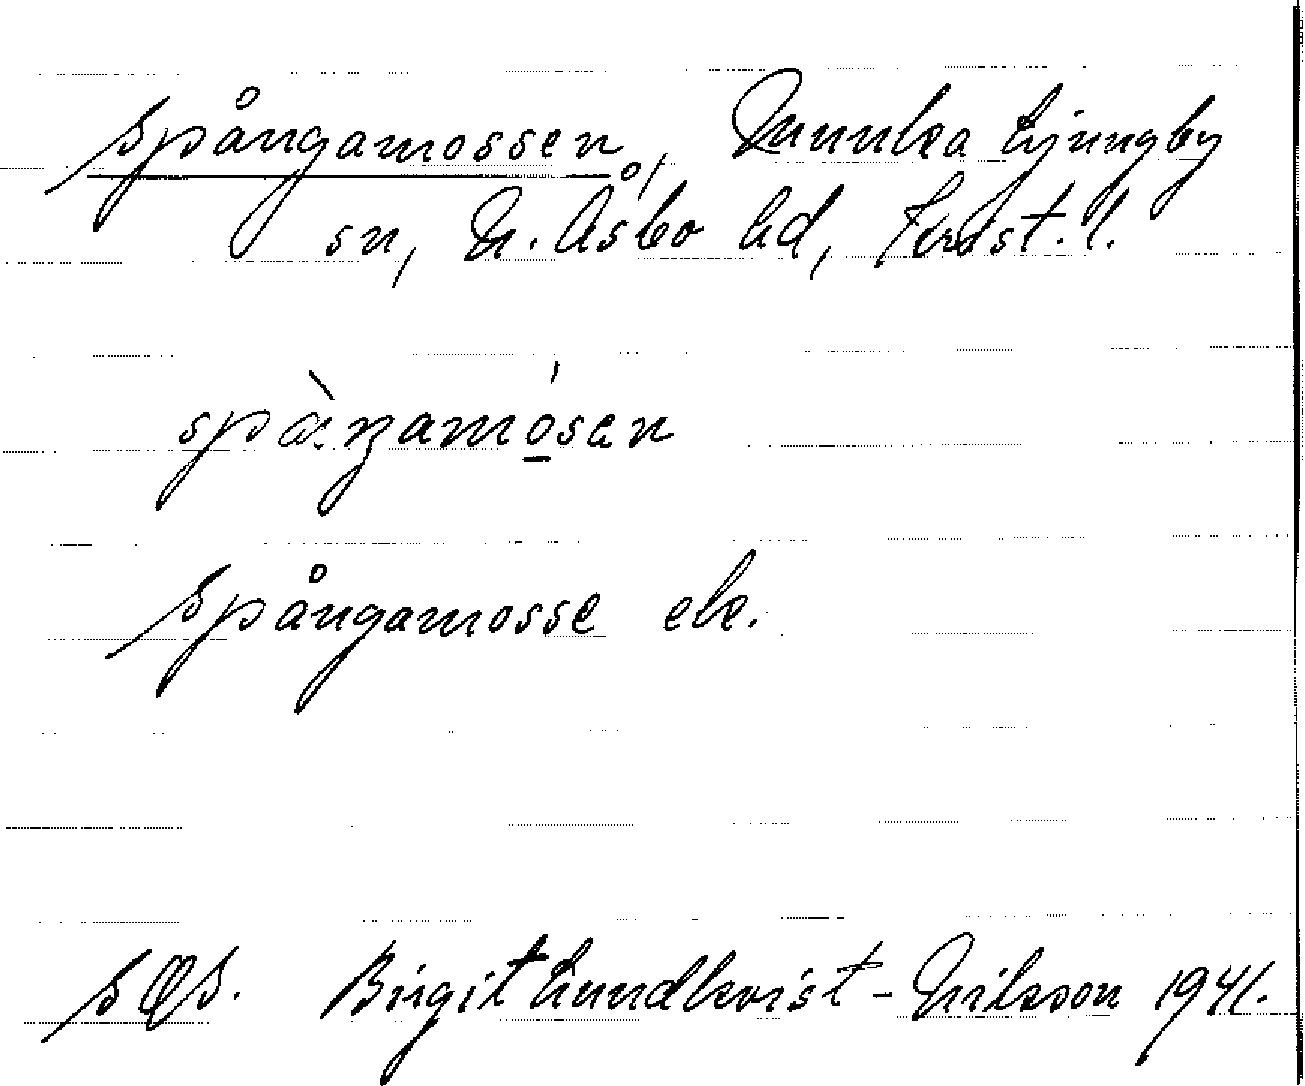 Spångamossen, Munka Ljungby
sn, N. Åsbo hd, Krist. l.
spàŋamósen
Spångamosse ek.
SOS. Birgit Lundkvist-Nilsson 1941.